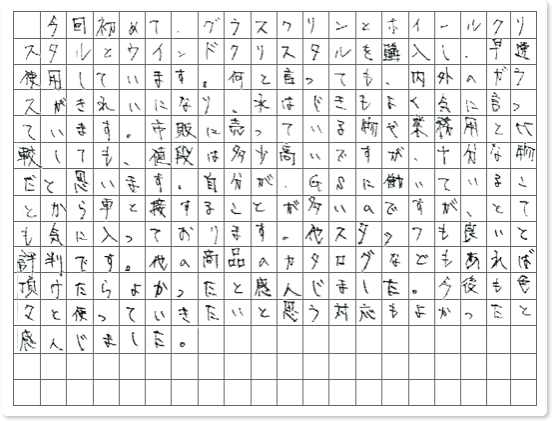 今回初めて、グラスクリンとホイールクリ
スタルとウインドクリスタルを購入し、早速
使用しています。何と言っても、内外のガラ
スがきれいになり、水はじきもよく気に言っ
ています。市販に売っている物や業務用と比
較しても、値段は多少高いですが、十分な物
だと思います。自分が、GSに働いているこ
とから車と接することが多いのですが、とて
も気に入っております。他スタッフも良いと
評判です。他の商品のカタログなどもあれば
頂けたらよかったと感んじました。今後も色
々と使っていきたいと思う対応もよかったと
感んじました。